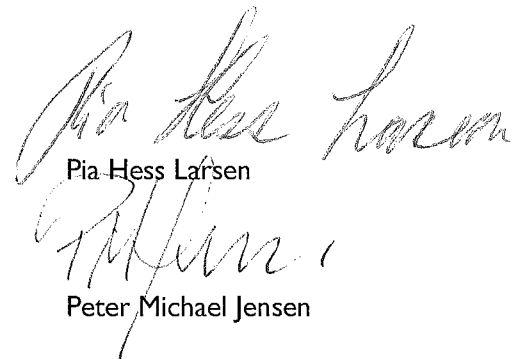 Pia Hess Larsen
Pia Hess Larsen
PMJensen
Peter Michael Jensen